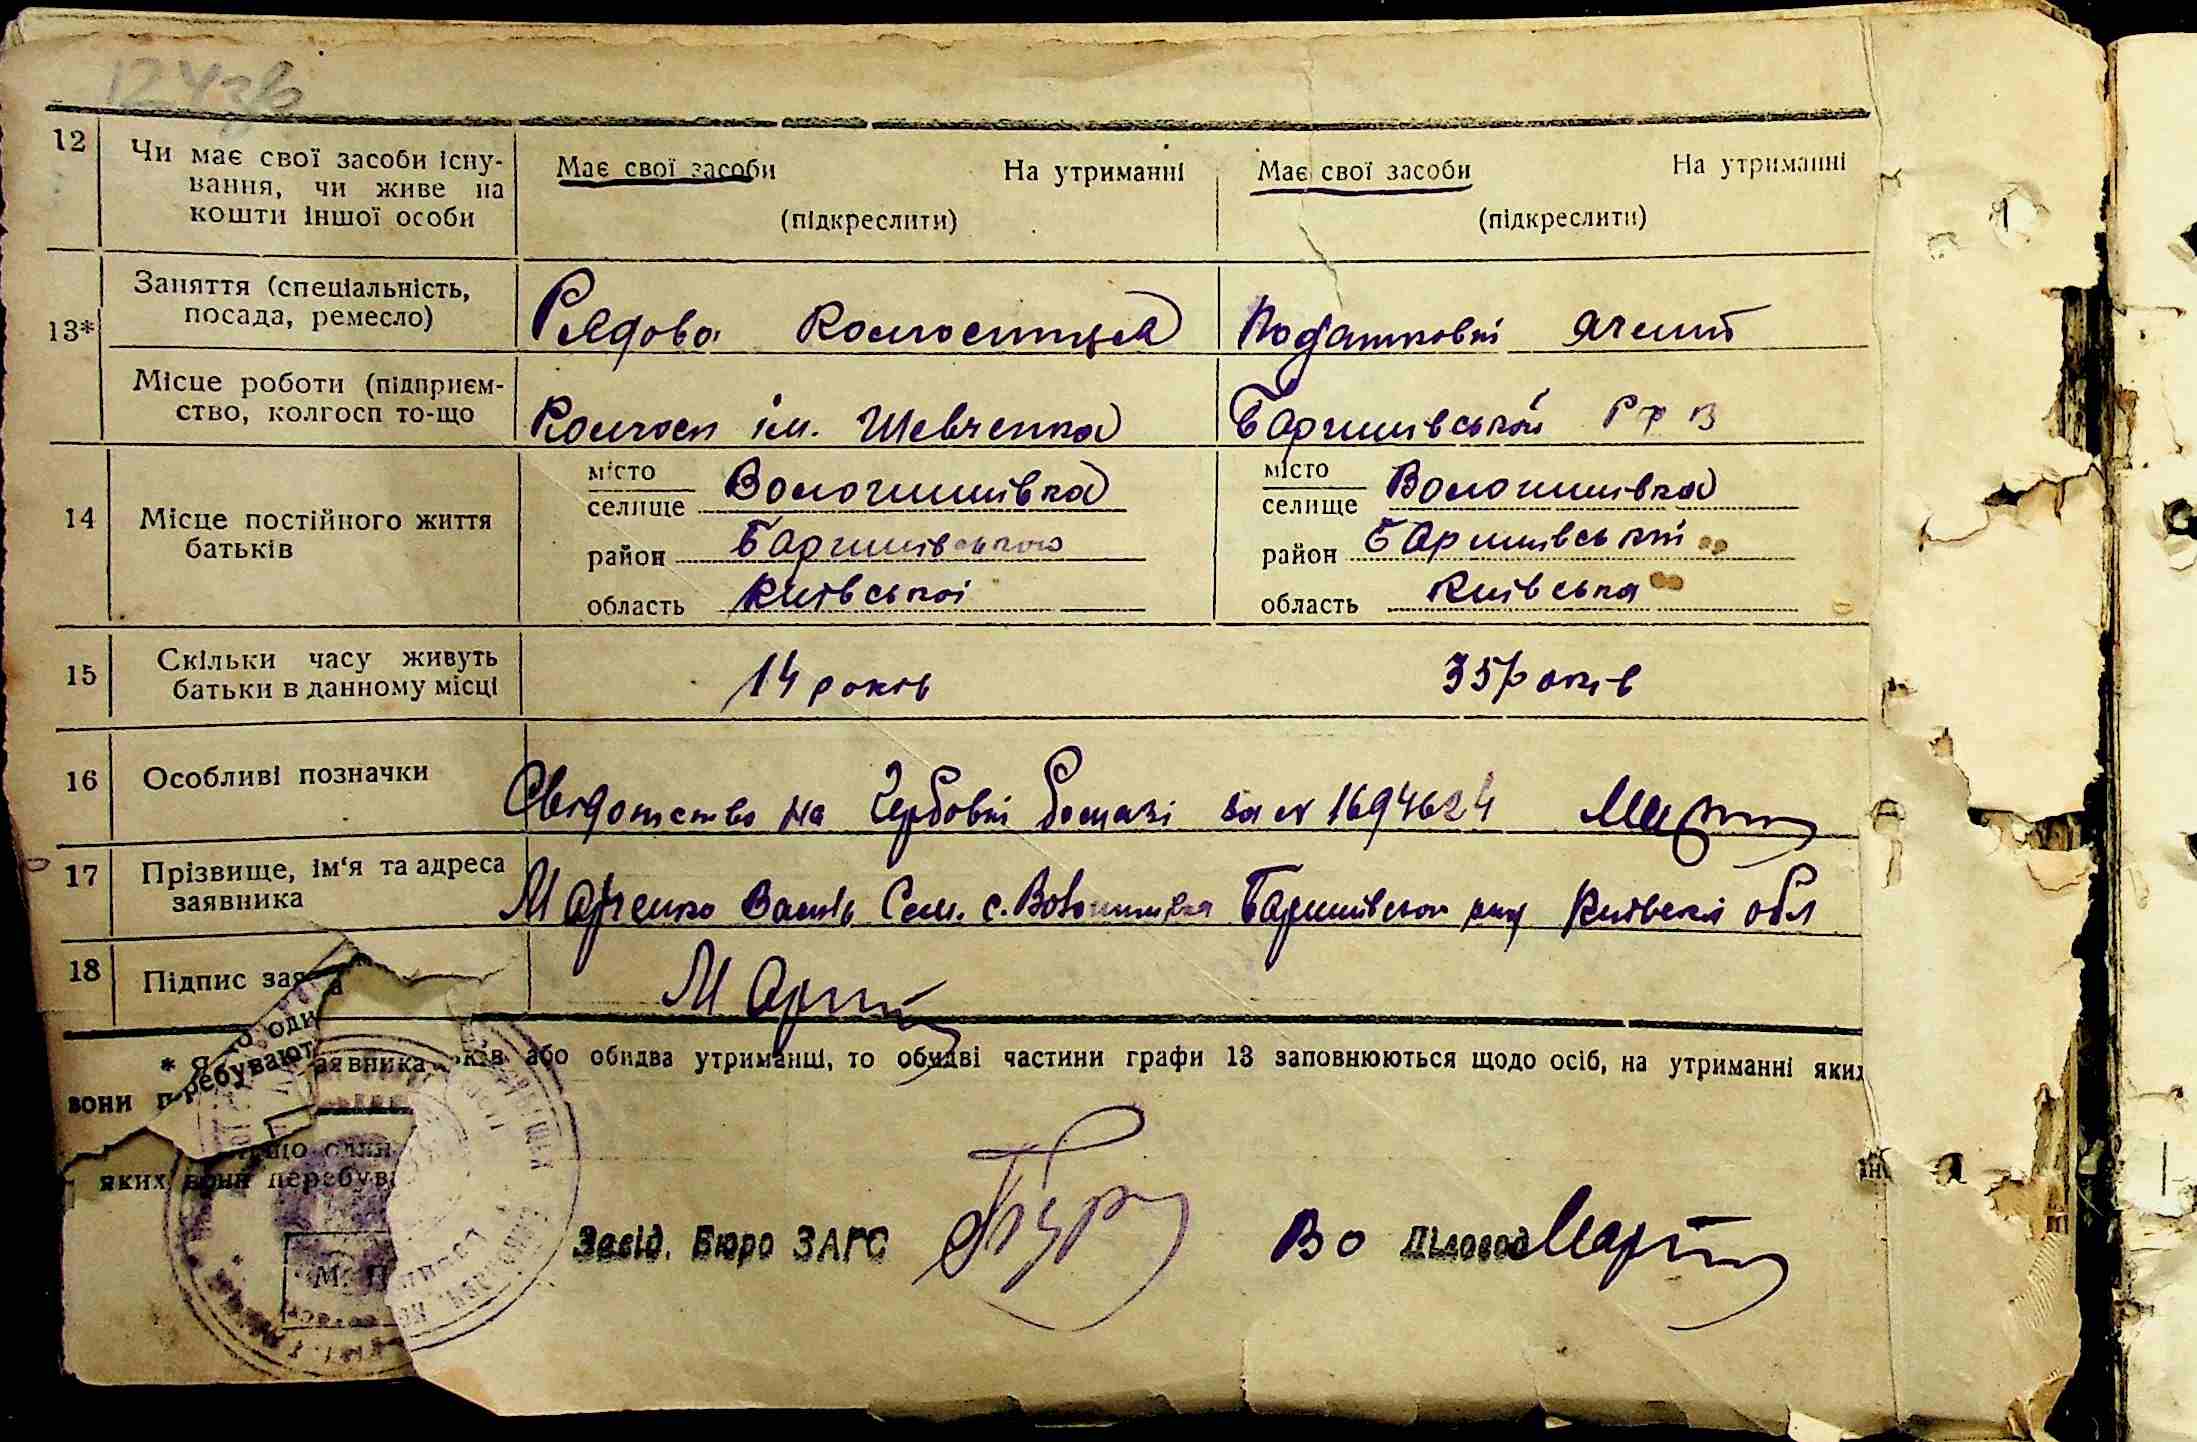 124зв
12 Чи має свої засоби існу-
вання, чи живе на
кошти іншої особи
Має свої засоби На утриманні
(підкреслити)
Має свої засоби На утриманні
(підкреслити)
13*
Заняття (спеціальність,
посада, ремесло)
Рядова колгоспниця
Податковий агент
Місце роботи (підприєм-
ство, колгосп то-що
Колгосп ім. Шевченка
Баришівський РФВ
14 Місце постійного життя
батьків
місто
селище Волошинівка
район Баришівського
область Київської
місто
селище Волошинівка
район Баришівський
область Київська
15 Скільки часу живуть
батьки в данному місці
14 років
35 років
16 Особливі позначки
Свідотство на Гербовій бомазі за № 1694624
17 Прізвище, ім'я та адреса
заявника
Марченко Василь Сем. с. Волошинівка Баришівськ рну Київскої обл
18 Підпис зая
* Я
аявника або обидва утриманці, то обидві частини графи 13 заповнюються щодо осіб, на утриманні яких
вони перебувают
що один
яких вони перебув
М. П
Завід. Бюро ЗАГС
Во Діловод